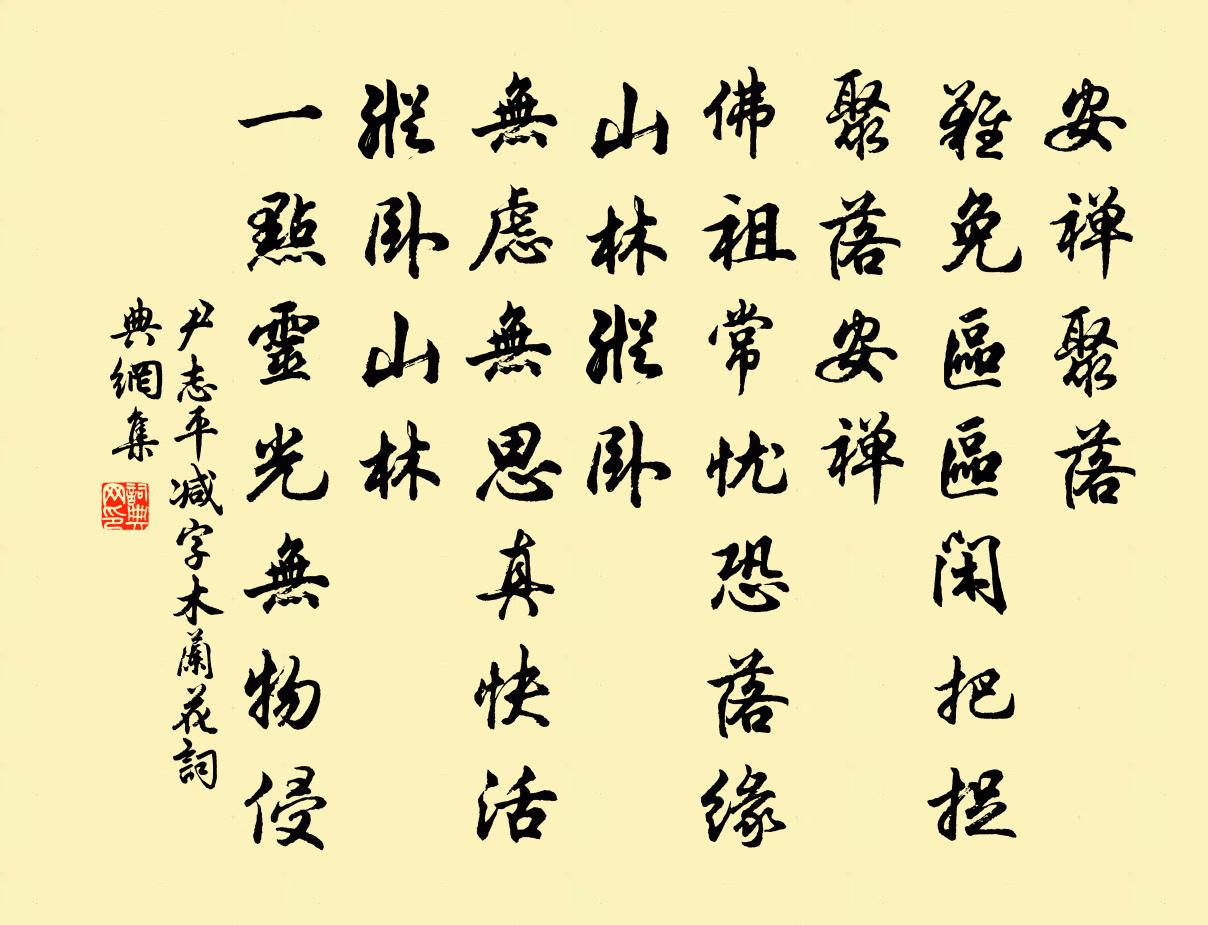 安禅聚落
難免區區閑把捉
聚落安禅
佛祖常忧恐落缘
山林縱卧
無慮無思真快活
縱卧山林
一點靈光無物侵
尹志平减字木蘭花詞
典網集
詞典网印